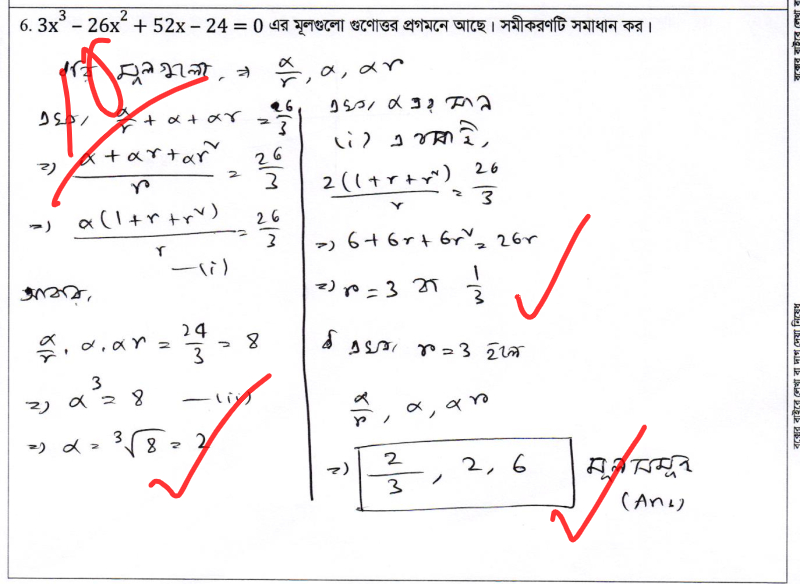 6. 3x³ − 26x² + 52x − 24 = 0 এর মূলগুলো গুণোত্তর প্রগমনে আছে। সমীকরণটি সমাধান কর।
ধরি মূলগুলো, ⇒ α/r, α, αr
এখন, α/r + α + αr = 26/3
⇒ (α + αr + αr²)/r = 26/3
⇒ α(1 + r + r²)/r = 26/3
—(i)
আবার,
α/r . α . αr = 24/3 = 8
⇒ α³ = 8 —(ii)
⇒ α = ³√8 = 2
এখন, α এর মান
(i) এ বসাই,
2(1 + r + r²)/r = 26/3
⇒ 6 + 6r + 6r² = 26r
⇒ r = 3 বা 1/3
এখন, r = 3 হলে
α/r, α, αr
⇒ 2/3, 2, 6 মূলসমূহ
(Ans)
10
বক্সের বাইরে লেখা বা দাগ দেয়া নিষেধ